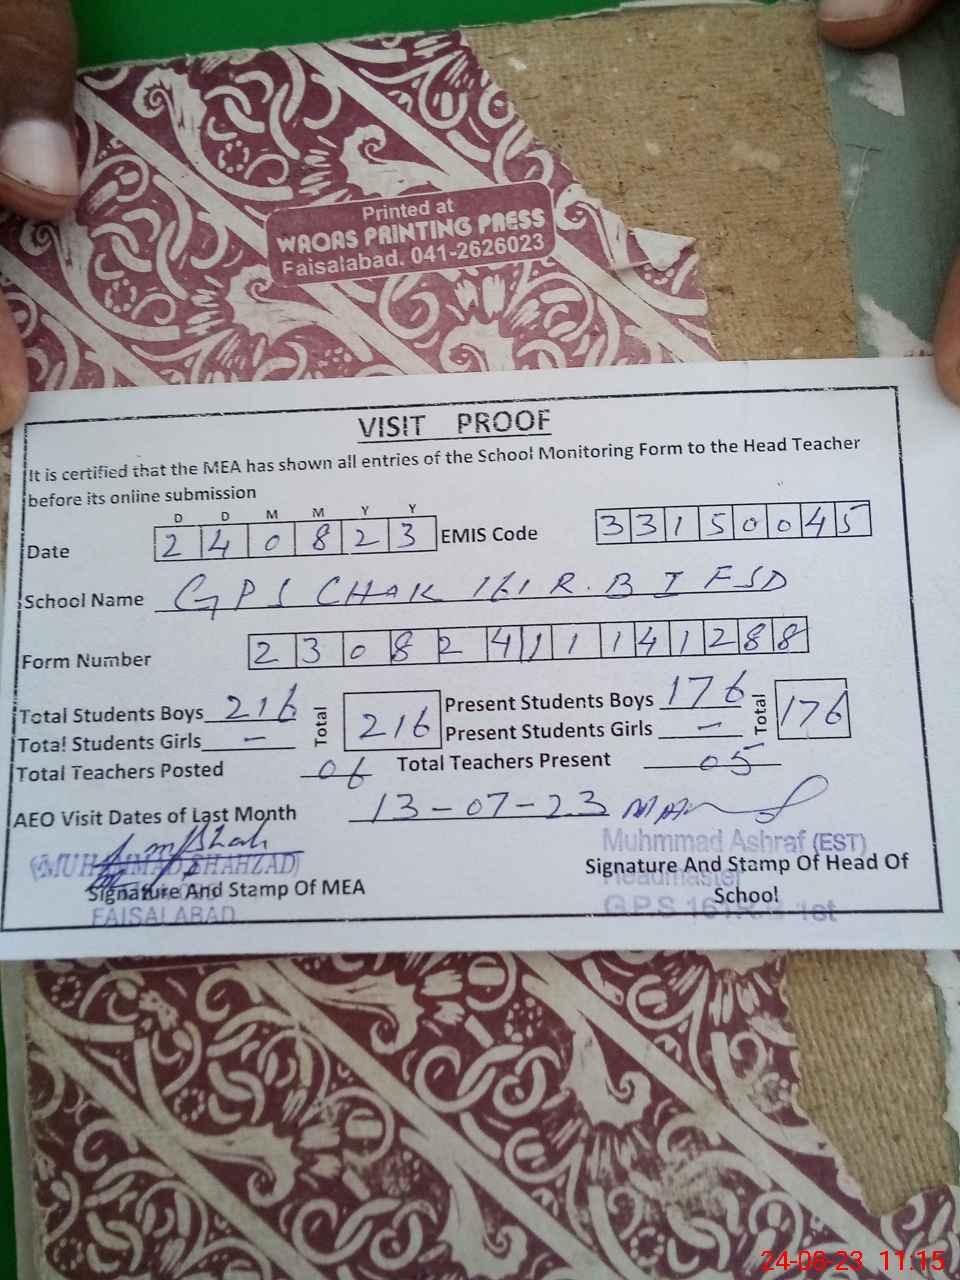 Printed at
WAQAS PRINTING PRESS
Faisalabad. 041-2626023
VISIT PROOF
It is certified that the MEA has shown all entries of the School Monitoring Form to the Head Teacher
before its online submission
D D M M Y Y
Date 2 4 0 8 2 3 EMIS Code 3 3 1 5 0 0 4 5
School Name GPS CHAK 161 R.B I FSD
Form Number 2 3 0 8 2 4 1 1 1 4 1 2 8 8
Total Students Boys 216 Total 216 Present Students Boys 176 Total 176
Total Students Girls - Present Students Girls -
Total Teachers Posted 06 Total Teachers Present 05
AEO Visit Dates of Last Month 13-07-23
(MUHAMMAD SHAHZAD) Muhmmad Ashraf (EST)
Signature And Stamp Of MEA Signature And Stamp Of Head Of
Headmaster School
FAISALABAD G.P.S 161 R.B 1st
24-08-23 11:15